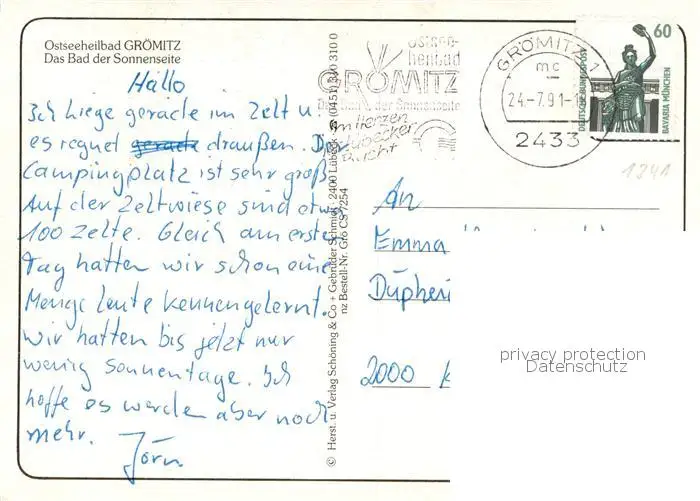 Ostseeheilbad GRÖMITZ
Das Bad der Sonnenseite
Hallo
Ich liege gerade im Zelt u.
es regnet gerade draußen. Der
Campingplatz ist sehr groß.
Auf der Zeltwiese sind etwa
100 Zelte. Gleich am ersten
Tag hatten wir schon eine
Menge Leute kennengelernt.
Wir hatten bis jetzt nur
wenig Sonnentage. Ich
hoffe es werden aber noch
mehr. Jörn
© Herst. u. Verlag Schöning & Co + Gebrüder Schmidt · 2400 Lübeck · ☎ (0451) 310 310 0
nz Bestell-Nr. Grö CS 7254
Ostsee-
heilbad
GRÖMITZ
Das Bad der Sonnenseite
im Herzen
Lübecker
Bucht
GRÖMITZ 1
mc
24.-7.91-1
2433
60
DEUTSCHE BUNDESPOST
BAVARIA MÜNCHEN
1341
An
Emma
2000
privacy protection
Datenschutz